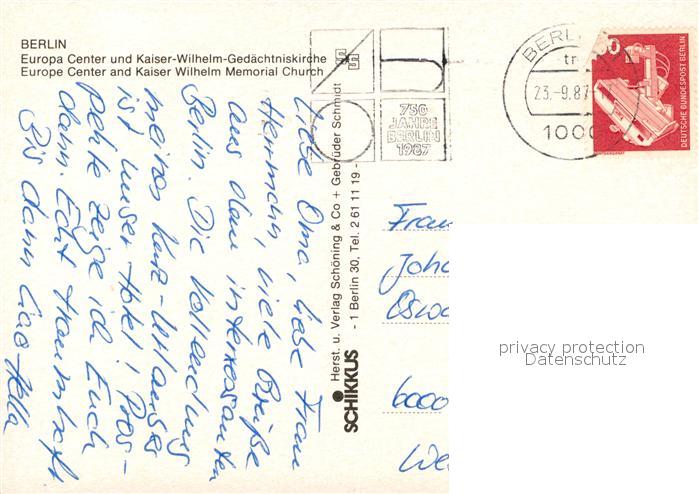 BERLIN
Europa Center und Kaiser-Wilhelm-Gedächtniskirche
Europe Center and Kaiser Wilhelm Memorial Church
Liebe Oma, liebe Frau
Herrmann, viele Grüße
aus dem interessanten
Berlin. Die Vollendung
meines Kurz-Urlaubes
ist unser Hotel! Pros-
pekte zeige ich Euch
dann. Echt traumhaft
Bis dann Ciao-Hella
SCHIKKUS
Herst. u. Verlag Schöning & Co + Gebrüder Schmidt
- 1 Berlin 30, Tel. 2 61 11 19 -
750
JAHRE
BERLIN
1987
BERLIN
23.-9.87
1000
DEUTSCHE BUNDESPOST BERLIN
Frau
Joh
Osw
6000
We
privacy protection
Datenschutz